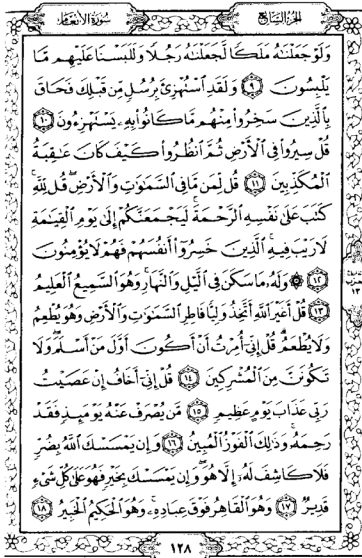 الجزء السابع
سورة الأنعام
وَلَوْ جَعَلْنَٰهُ مَلَكًا لَّجَعَلْنَٰهُ رَجُلًا وَلَلَبَسْنَا عَلَيْهِم مَّا
يَلْبِسُونَ ٩ وَلَقَدِ ٱسْتُهْزِئَ بِرُسُلٍ مِّن قَبْلِكَ فَحَاقَ
بِٱلَّذِينَ سَخِرُوا۟ مِنْهُم مَّا كَانُوا۟ بِهِۦ يَسْتَهْزِءُونَ ١٠
قُلْ سِيرُوا۟ فِى ٱلْأَرْضِ ثُمَّ ٱنظُرُوا۟ كَيْفَ كَانَ عَٰقِبَةُ
ٱلْمُكَذِّبِينَ ١١ قُل لِّمَن مَّا فِى ٱلسَّمَٰوَٰتِ وَٱلْأَرْضِ ۖ قُل لِّلَّهِ ۚ
كَتَبَ عَلَىٰ نَفْسِهِ ٱلرَّحْمَةَ ۚ لَيَجْمَعَنَّكُمْ إِلَىٰ يَوْمِ ٱلْقِيَٰمَةِ
لَا رَيْبَ فِيهِ ۚ ٱلَّذِينَ خَسِرُوٓا۟ أَنفُسَهُمْ فَهُمْ لَا يُؤْمِنُونَ
١٢ ۞ وَلَهُۥ مَا سَكَنَ فِى ٱلَّيْلِ وَٱلنَّهَارِ ۚ وَهُوَ ٱلسَّمِيعُ ٱلْعَلِيمُ
١٣ قُلْ أَغَيْرَ ٱللَّهِ أَتَّخِذُ وَلِيًّا فَاطِرِ ٱلسَّمَٰوَٰتِ وَٱلْأَرْضِ وَهُوَ يُطْعِمُ
وَلَا يُطْعَمُ ۗ قُلْ إِنِّىٓ أُمِرْتُ أَنْ أَكُونَ أَوَّلَ مَنْ أَسْلَمَ ۖ وَلَا
تَكُونَنَّ مِنَ ٱلْمُشْرِكِينَ ١٤ قُلْ إِنِّىٓ أَخَافُ إِنْ عَصَيْتُ
رَبِّى عَذَابَ يَوْمٍ عَظِيمٍ ١٥ مَّن يُصْرَفْ عَنْهُ يَوْمَئِذٍ فَقَدْ
رَحِمَهُۥ ۚ وَذَٰلِكَ ٱلْفَوْزُ ٱلْمُبِينُ ١٦ وَإِن يَمْسَسْكَ ٱللَّهُ بِضُرٍّ
فَلَا كَاشِفَ لَهُۥٓ إِلَّا هُوَ ۖ وَإِن يَمْسَسْكَ بِخَيْرٍ فَهُوَ عَلَىٰ كُلِّ شَىْءٍ
قَدِيرٌ ١٧ وَهُوَ ٱلْقَاهِرُ فَوْقَ عِبَادِهِۦ ۚ وَهُوَ ٱلْحَكِيمُ ٱلْخَبِيرُ ١٨
١٢٨